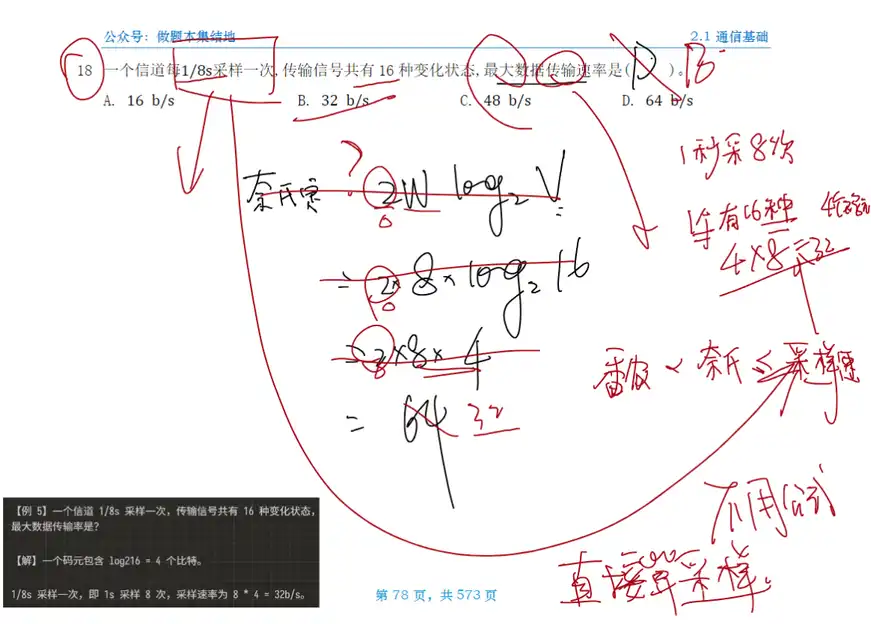 公众号：做题本集结地
2.1 通信基础
18 一个信道每1/8s采样一次,传输信号共有16种变化状态,最大数据传输速率是( D )。B
A. 16 b/s B. 32 b/s C. 48 b/s D. 64 b/s
1秒采8次
奈氏 ? 2W log₂V
有16种
4×8=32
= 2×8×log₂16
2×8×4
香 < 奈氏 ≤ 采样
= 64 32
不用公式
直接 采样。
【例 5】一个信道 1/8s 采样一次，传输信号共有 16 种变化状态，
最大数据传输率是？
【解】一个码元包含 log216 = 4 个比特。
1/8s 采样一次，即 1s 采样 8 次，采样速率为 8 * 4 = 32b/s。
第 78 页，共 573 页